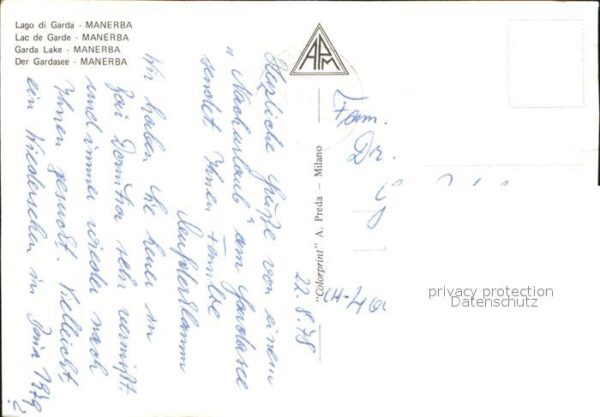 Lago di Garda - MANERBA
Lac de Garde - MANERBA
Garda Lake - MANERBA
Der Gardasee - MANERBA
APM
"Colorprint" A. Preda – Milano
22.8.78
Herzliche Grüße von einem
"Nachurlaub" am Gardasee
sendet Ihnen Familie
Wir haben Sie heuer in
Zai Domitia sehr vermißt
und immer wieder nach
Ihnen gesucht. Vielleicht
ein Wiedersehen in 1979
?
Fam.
Dr.
CH-40
privacy protection
Datenschutz